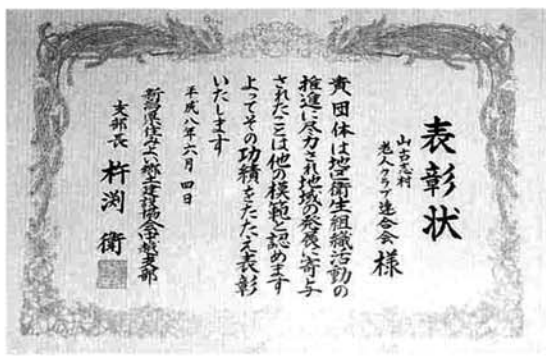 表彰状
山古志村
老人クラブ連合会 様
貴団体は地区衛生組織活動の
推進に尽力され地域の発展に寄与
されたことは他の模範と認めます
よってその功績をたたえ表彰
いたします
平成八年六月四日
新潟県住みよい郷土建設協会中越支部
支部長 杵渕 衛